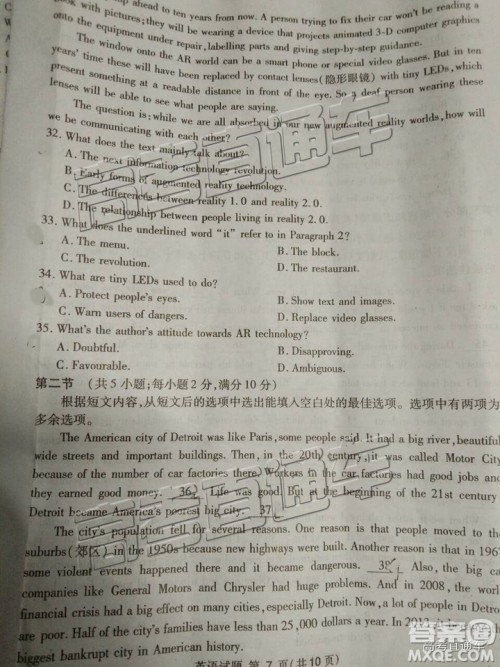 ahead to ten years from now. A person trying to fix their car won't be reading a
with pictures; they will be wearing a device that projects animated 3-D computer graphics
onto the equipment under repair, labelling parts and giving step-by-step guidance.
The window onto the AR world can be a smart phone or special video glasses. But in ten
years' time these will have been replaced by contact lenses(隐形眼镜) with tiny LEDs, which
present something at a readable distance in front of the eye. So a deaf person wearing these
lenses will be able to see what people are saying.
The question is: while we are all absorbed in our new augmented reality worlds, how will
we be communicating with each other?
32. What does the text mainly talk about?
A. The next information technology revolution.
B. Early forms of augmented reality technology.
C. The differences between reality 1.0 and reality 2.0.
D. The relationship between people living in reality 2.0.
33. What does the underlined word "it" refer to in Paragraph 2?
A. The menu.
B. The block.
C. The revolution.
D. The restaurant.
34. What are tiny LEDs used to do?
A. Protect people's eyes.
B. Show text and images.
C. Warn users of dangers.
D. Replace video glasses.
35. What's the author's attitude towards AR technology?
A. Doubtful.
B. Disapproving.
C. Favourable.
D. Ambiguous.
第二节 (共5小题;每小题2分,满分10分)
根据短文内容,从短文后的选项中选出能填入空白处的最佳选项。选项中有两项为
多余选项。
The American city of Detroit was like Paris, some people said. It had a big river, beautiful
wide streets and important buildings. Then, in the 20th century, it was called Motor City
because of the number of car factories there. Workers in the car factories had good jobs and
they earned good money. 36 Life was good. But at the beginning of the 21st century
Detroit became America's poorest big city. 37
The city's population fell for several reasons. One reason is that people moved to the
suburbs(郊区) in the 1950s because new highways were built. Another reason is that in 1967
some violent events happened there and it became dangerous. 38 Also, the big car
companies like General Motors and Chrysler had huge problems. And in 2008, the world
financial crisis had a big effect on many cities, especially Detroit. Now, a lot of people in Detroit
are poor. Half of the city's families have less than 25,000 dollars a year. In 2013, it became the
biggest bankrupt city in American history.
英语试题 第 7 页(共10页)
高考直通车
答案圈
MXQE.COM